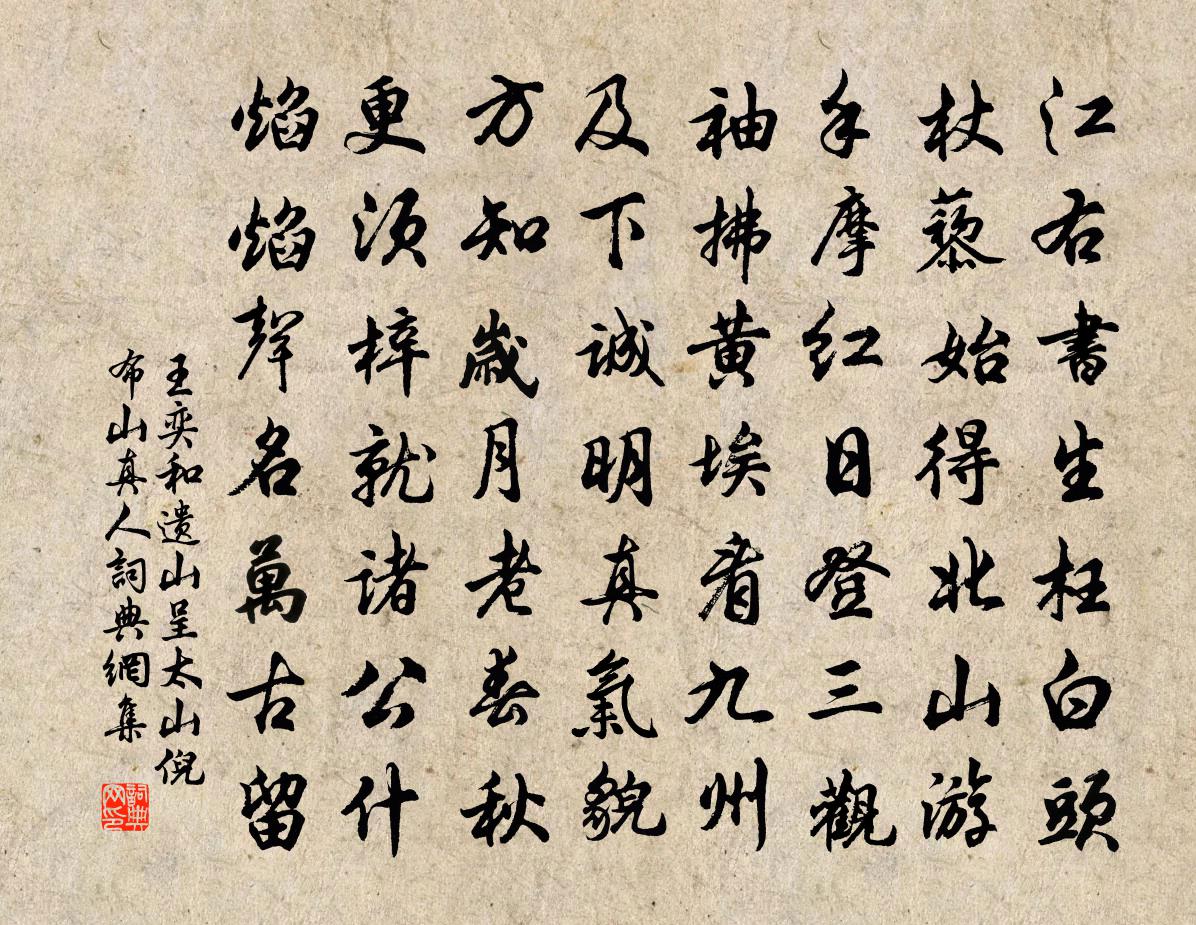 江右書生枉白頭
杖藜始得北山游
手摩红日登三觀
袖拂黄埃看九州
及下诚明真氣貌
方知歲月老春秋
更须梓就诸公什
焰焰聲名萬古留
王奕和遗山呈太山倪
布山真人詞典網集
詞典
网印